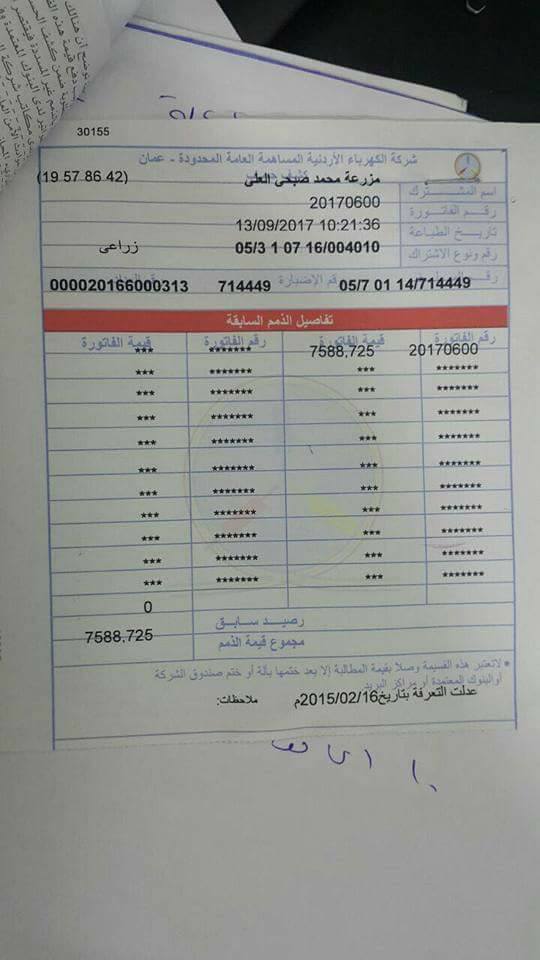 30155
شركة الكهرباء الأردنية المساهمة العامة المحدودة - عمان
مزرعة محمد صبحي العلي (19 57 86.42)
اسم المشترك
20170600
رقم الفاتورة
13/09/2017 10:21:36
تاريخ الطباعة
رقم ونوع الاشتراك 05/3 1 07 16/004010 زراعي
05/7 01 14/714449 رقم الإضبارة 714449 000020166000313
تفاصيل الذمم السابقة
رقم الفاتورة قيمة الفاتورة رقم الفاتورة قيمة الفاتورة
20170600 7588,725 ******* ***
******* *** ******* ***
******* *** ******* ***
******* *** ******* ***
******* *** ******* ***
******* *** ******* ***
******* *** ******* ***
******* *** ******* ***
******* *** ******* ***
******* *** ******* ***
******* *** ******* ***
رصيد سابق 0
مجموع قيمة الذمم 7588,725
• لاتعتبر هذه القسيمة وصلا بقيمة المطالبة إلا بعد ختمها بآلة أو ختم صندوق الشركة
أوالبنوك المعتمدة أو مراكز البريد
عدلت التعرفة بتاريخ 2015/02/16م ملاحظات: